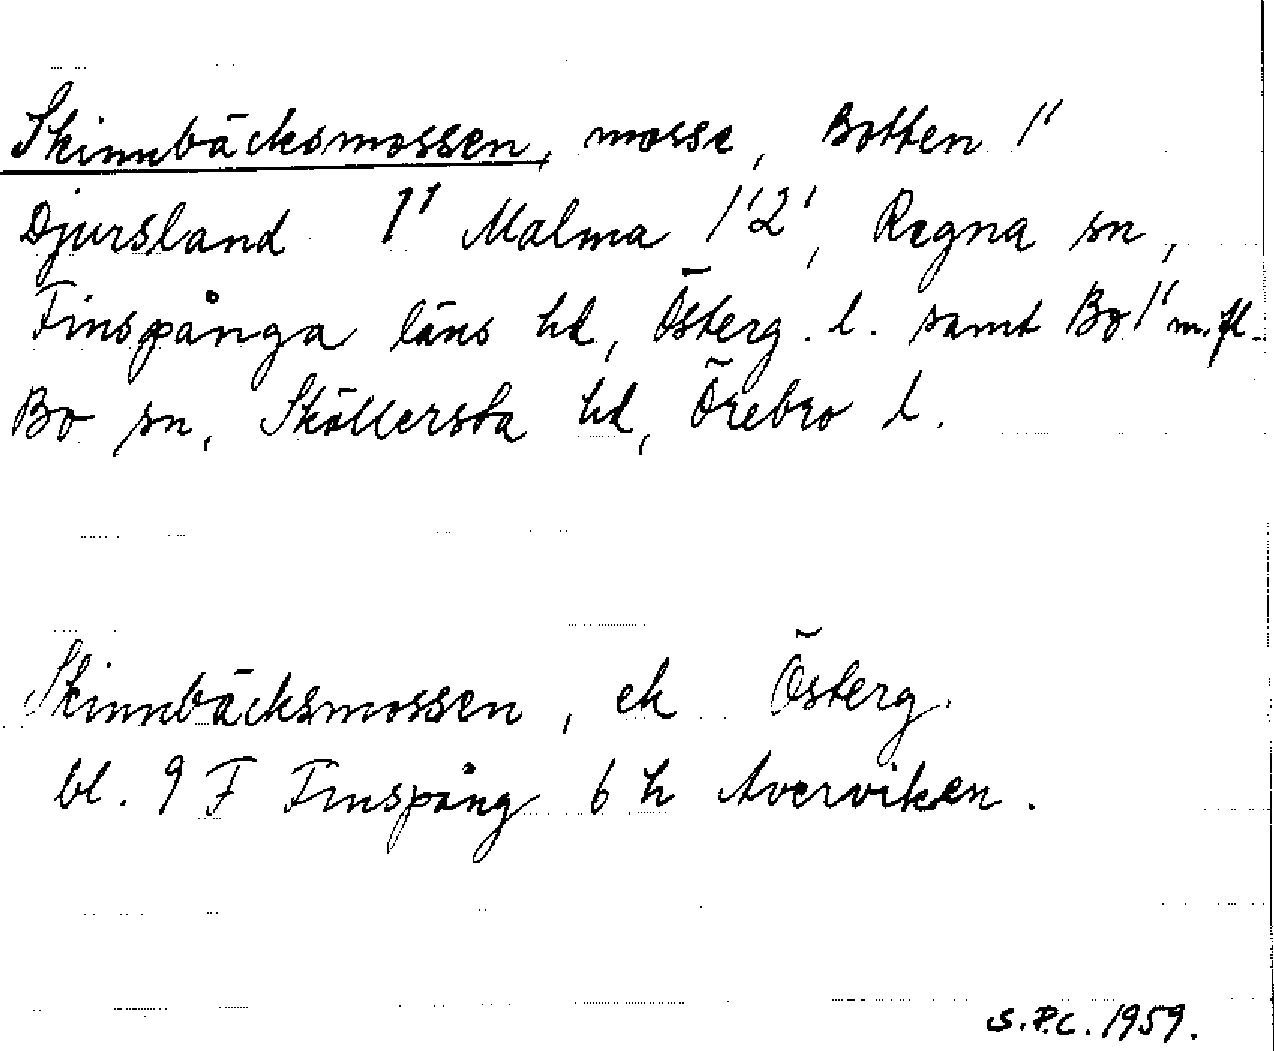 Skinnbäcksmossen, mosse, Botten 1'
Djursland 1' Malma 1'2', Regna sn,
Finspånga läns hd, Österg. l. samt Bo 1' m.fl.
Bo sn, Sköllersta hd, Örebro l.
Skinnbäcksmossen, ek Österg.
bl. 9 F Finspång 6 h Averviken.
S.P.C. 1959.